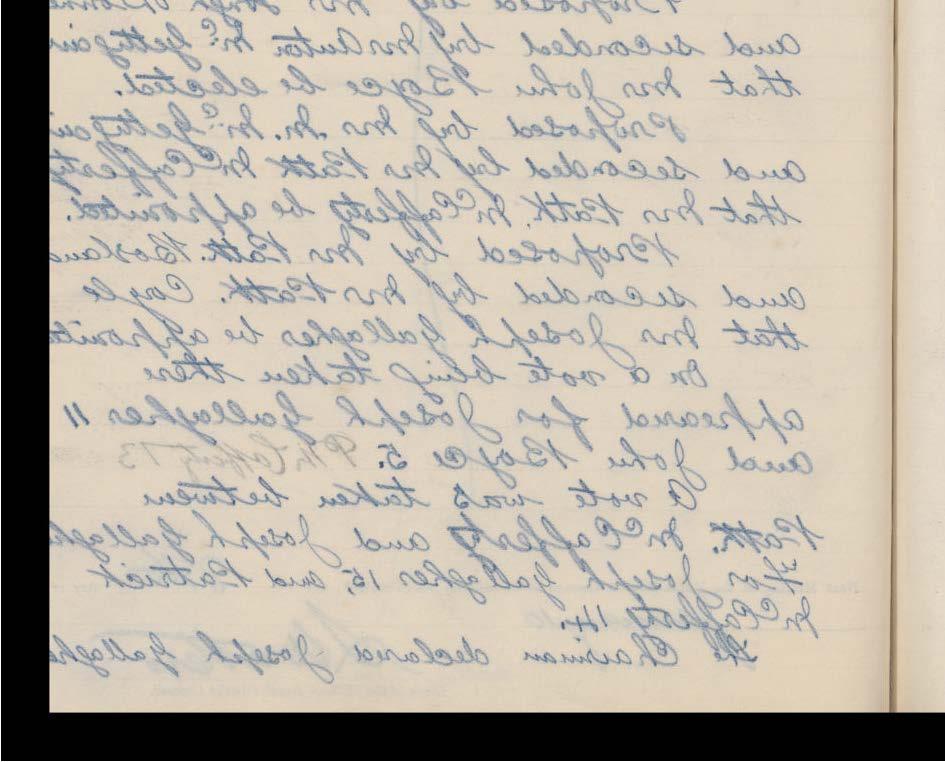 Proposed by Mr
and seconded by Mr Anton McGettigan
that Mr John Boyce be elected.
Proposed by Mr. M. McGettigan
and seconded by Mr Patk McCafferty
that Mr Patk. McCafferty be appointed.
Proposed by Mr Patk. Bosland
and seconded by Mr Patk. Coyle
that Mr Joseph Gallagher be appointed
On a vote being taken there
appeared for Joseph Gallagher 11
and John Boyce 5. P McCafferty 13
A vote was taken between
Patk. McCafferty and Joseph Gallagh
For Joseph Gallagher 15, and Patrick
McCafferty 14.
The Chairman declared Joseph Gallaghe